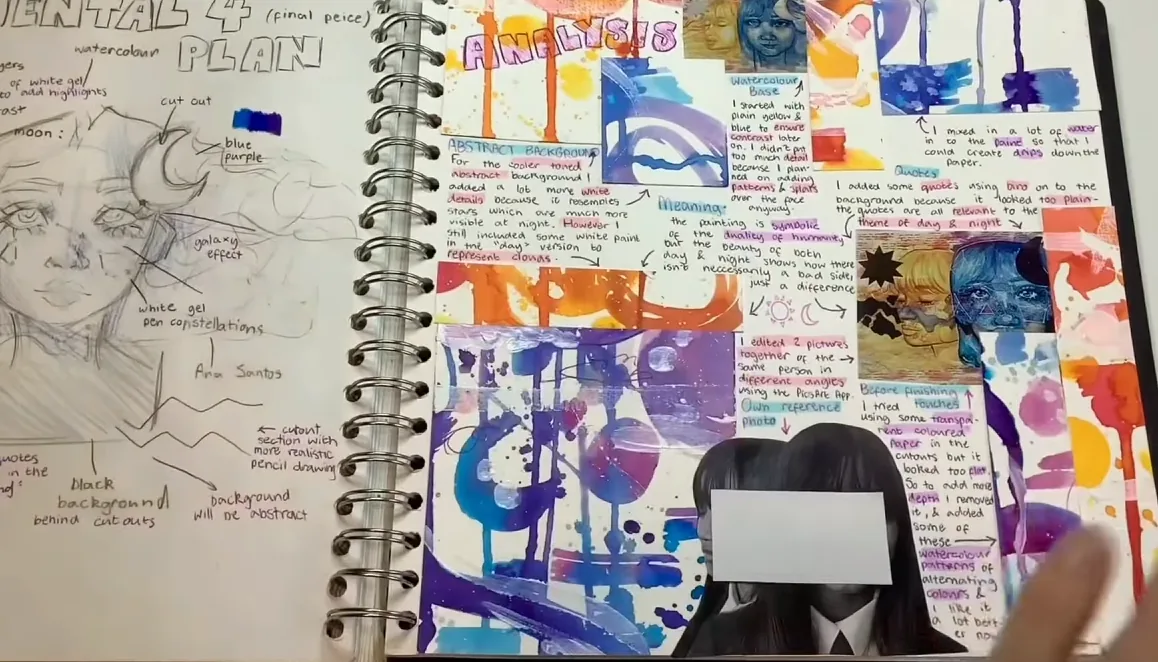 ENTAL 4 (final peice)
PLAN
watercolour
of white gel
to add highlights
cut out
moon :
blue
purple
galaxy
effect
white gel
pen constellations
Ana Santos
← cutout
section with
more realistic
pencil drawing
quotes
in the
black
background
behind cutouts
background
will be abstract
ANALYSIS
ABSTRACT BACKGROUND
For the cooler toned
abstract background I
added a lot more white
details because it resembles
stars which are much more
visible at night. However I
still included some white paint
in the "day" version to
represent clouds.
Watercolour
Base
I started with
plain yellow &
blue to ensure
contrast later
on. I didn't put
too much detail
because I plan-
ned on adding
patterns & splats
over the face
anyway.
Meaning:
the painting is symbolic
of the duality of humanity
but the beauty of both
day & night shows how there
isn't neccessarily a bad side,
just a difference
I mixed in a lot of water
in to the paint so that I
could create drips down the
paper.
Quotes
I added some quotes using biro on to the
background because it looked too plain-
the quotes are all relevant to the
theme of day & night
I edited 2 pictures
together of the →
same person in
different angles
using the PicsArt App.
Own reference
photo
Before finishing
touches
I tried
using some transpa-
rent coloured
paper in the
cutouts but it
looked too flat.
So to add more
depth I removed
it, & added
some of
these →
watercolour
patterns of
alternating
colours &
I like it
a lot bett-
er now